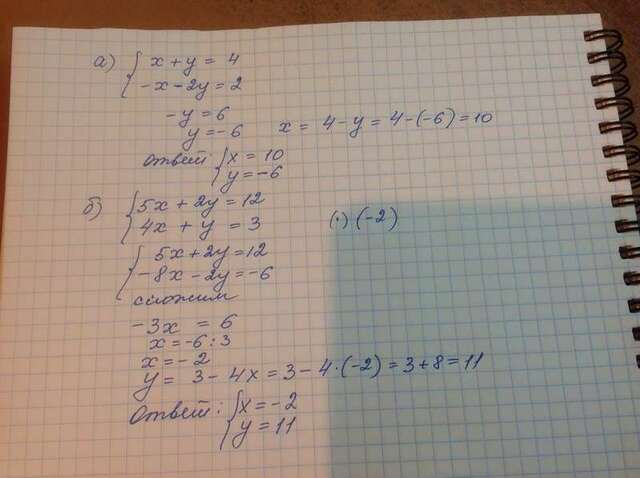 а) { x + y = 4
-x - 2y = 2
-y = 6
y = -6   x = 4 - y = 4 - (-6) = 10
ответ: { x = 10
y = -6
б) { 5x + 2y = 12
4x + y = 3   (·) (-2)
{ 5x + 2y = 12
-8x - 2y = -6
сложим
-3x = 6
x = -6 : 3
x = -2
y = 3 - 4x = 3 - 4 · (-2) = 3 + 8 = 11
Ответ: { x = -2
y = 11